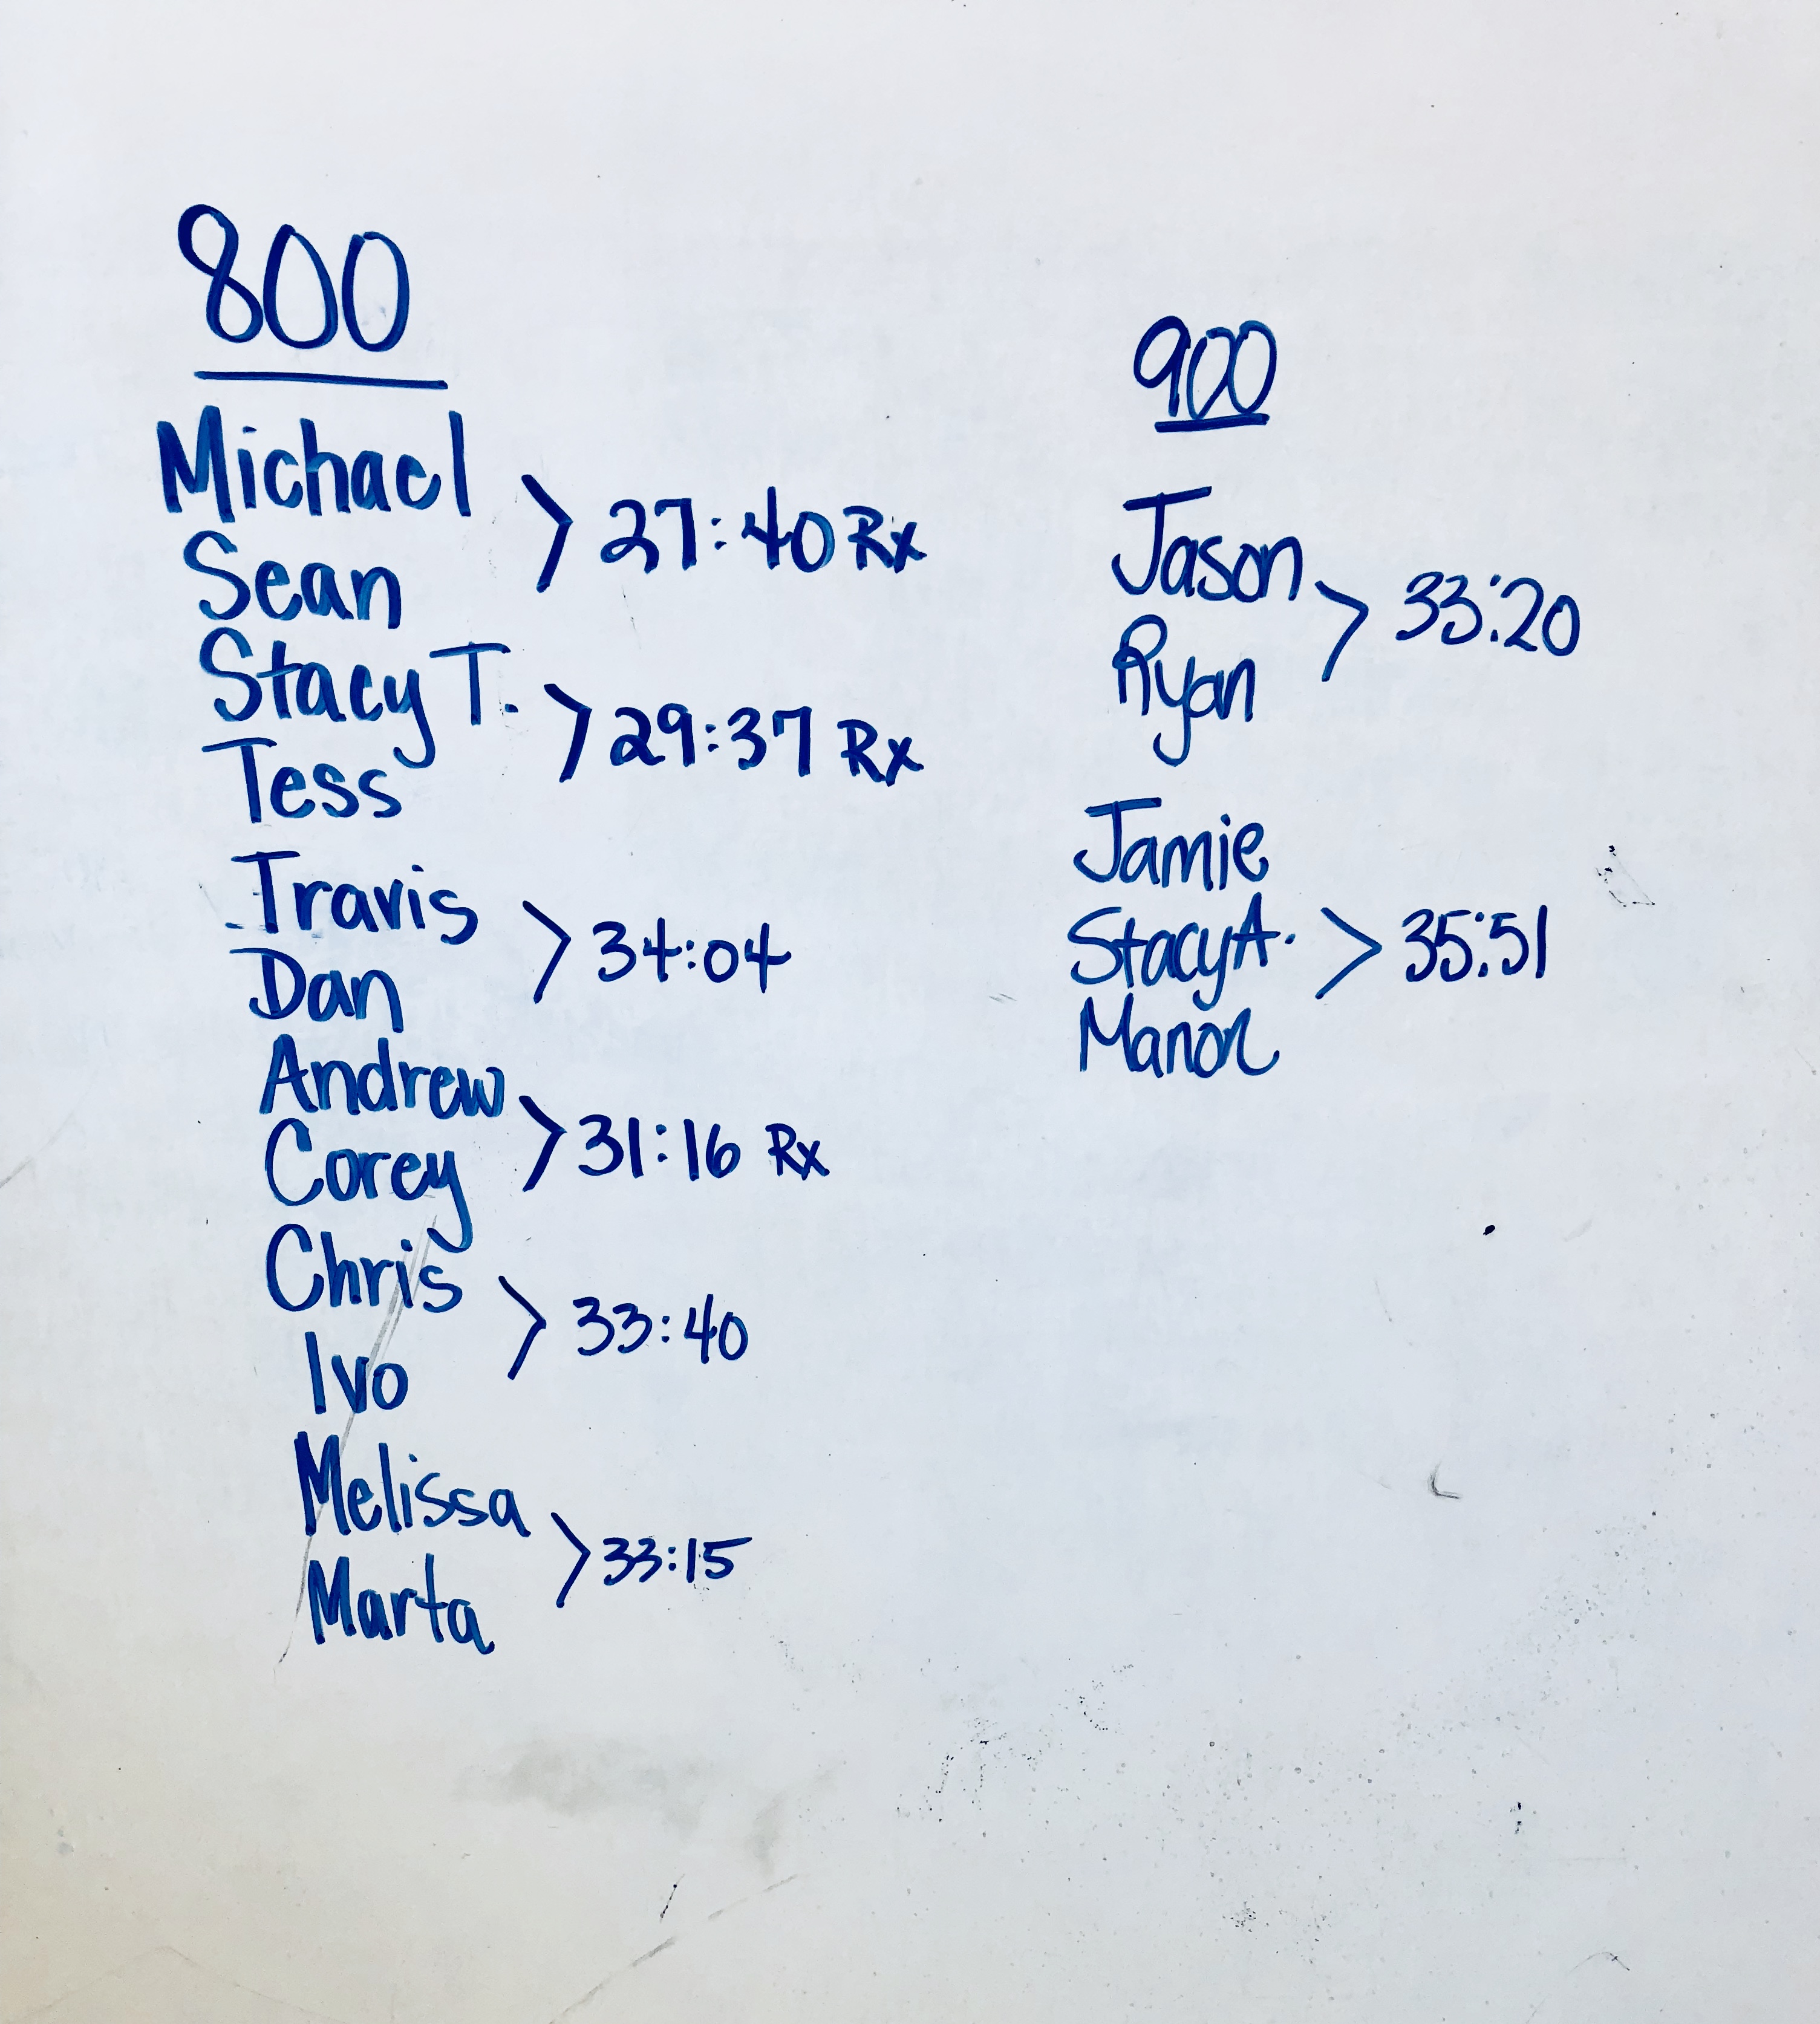 800
Michael
Sean
> 27:40 Rx
Stacy T.
Tess
> 29:37 Rx
Travis
Dan
> 34:04
Andrew
Corey
> 31:16 Rx
Chris
Ivo
> 33:40
Melissa
Marta
> 33:15
900
Jason
Ryan
> 33:20
Jamie
Stacy A.
Manon
> 35:51